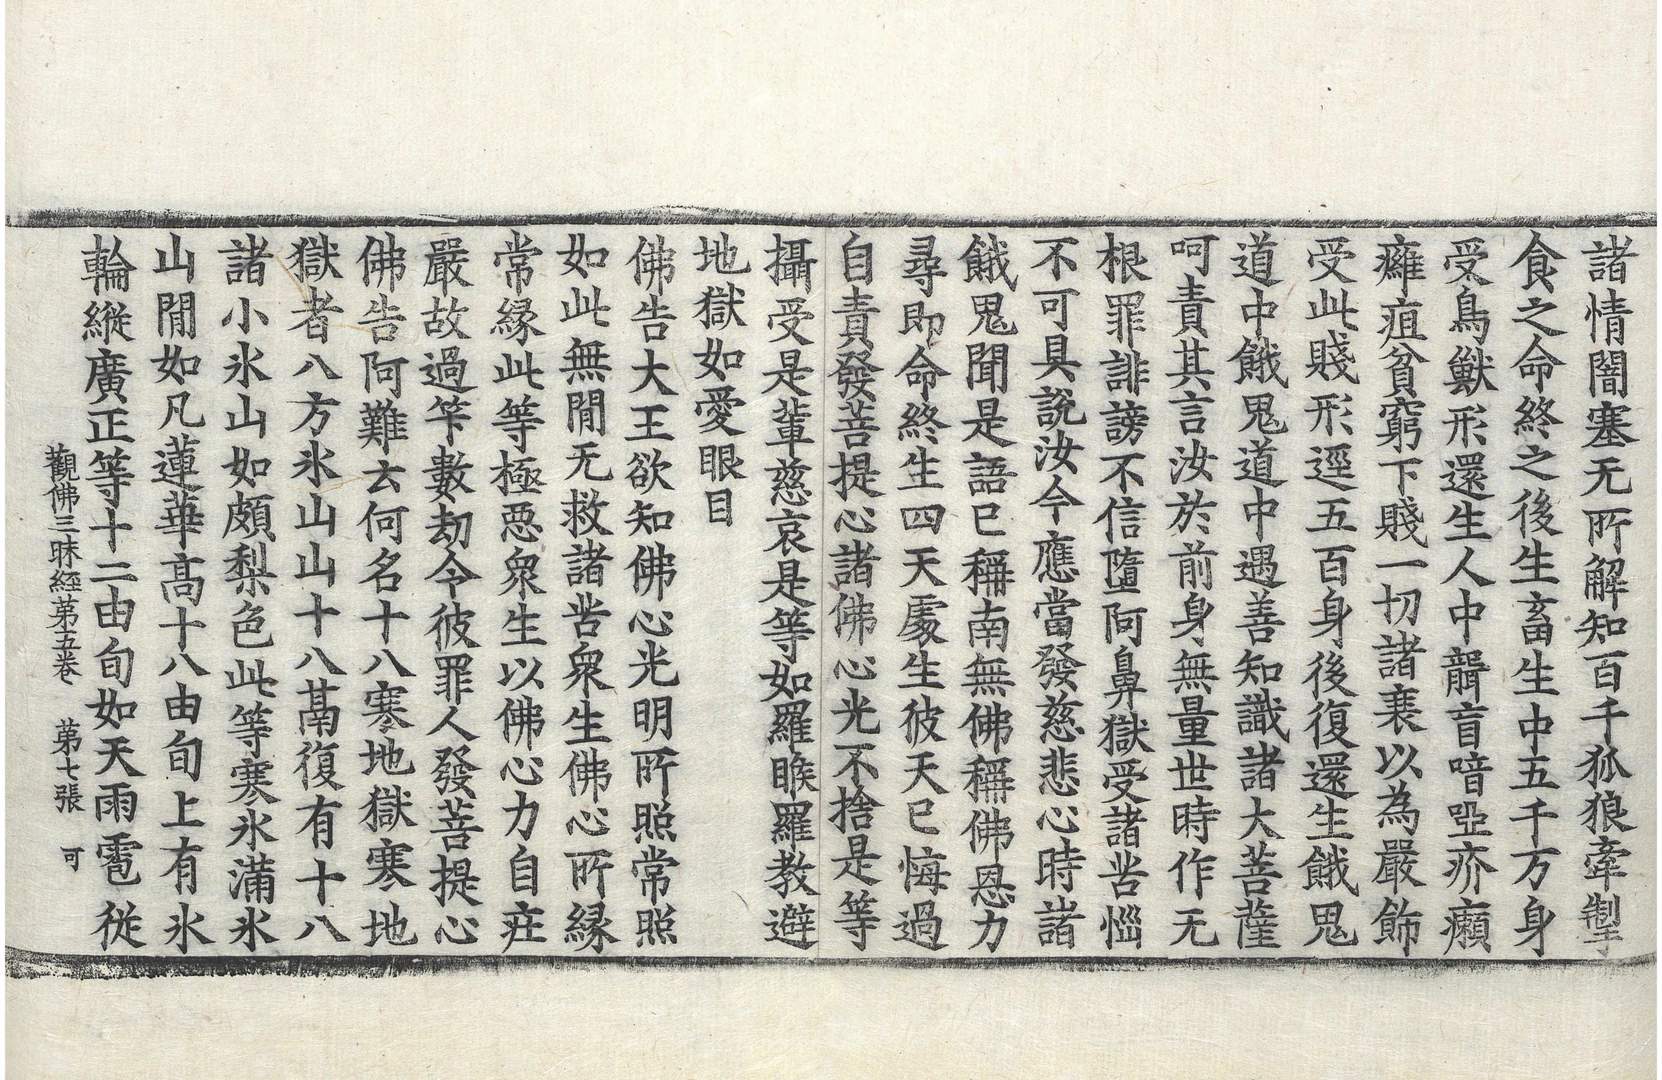 諸情闇塞无所解知百千狐狼牽掣
食之命終之後生畜生中五千万身
受鳥獸形還生人中聾盲喑瘂疥癩
癰疽貧窮下賤一切諸衰以為嚴飾
受此賤形逕五百身後復還生餓鬼
道中餓鬼道中遇善知識諸大菩薩
呵責其言汝於前身無量世時作无
根罪誹謗不信墮阿鼻獄受諸苦惱
不可具說汝今應當發慈悲心時諸
餓鬼聞是語已稱南無佛稱佛恩力
尋即命終生四天處生彼天已悔過
自責發菩提心諸佛心光不捨是等
攝受是輩慈哀是等如羅睺羅教避
地獄如愛眼目
佛告大王欲知佛心光明所照常照
如此無閒无救諸苦衆生佛心所緣
常緣此等極惡衆生以佛心力自莊
嚴故過筭數劫令彼罪人發菩提心
佛告阿難云何名十八寒地獄寒地
獄者八方氷山山十八鬲復有十八
諸小氷山如頗梨色此等寒氷滿氷
山閒如凡蓮華高十八由旬上有氷
輪縱廣正等十二由旬如天雨雹從
觀佛三昧經第五卷　第七張　可